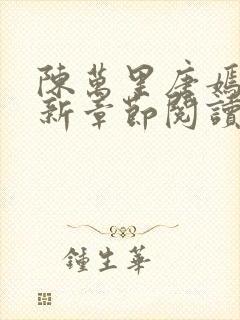 陳萬里唐嫣
新章節閱讀
鍾生華